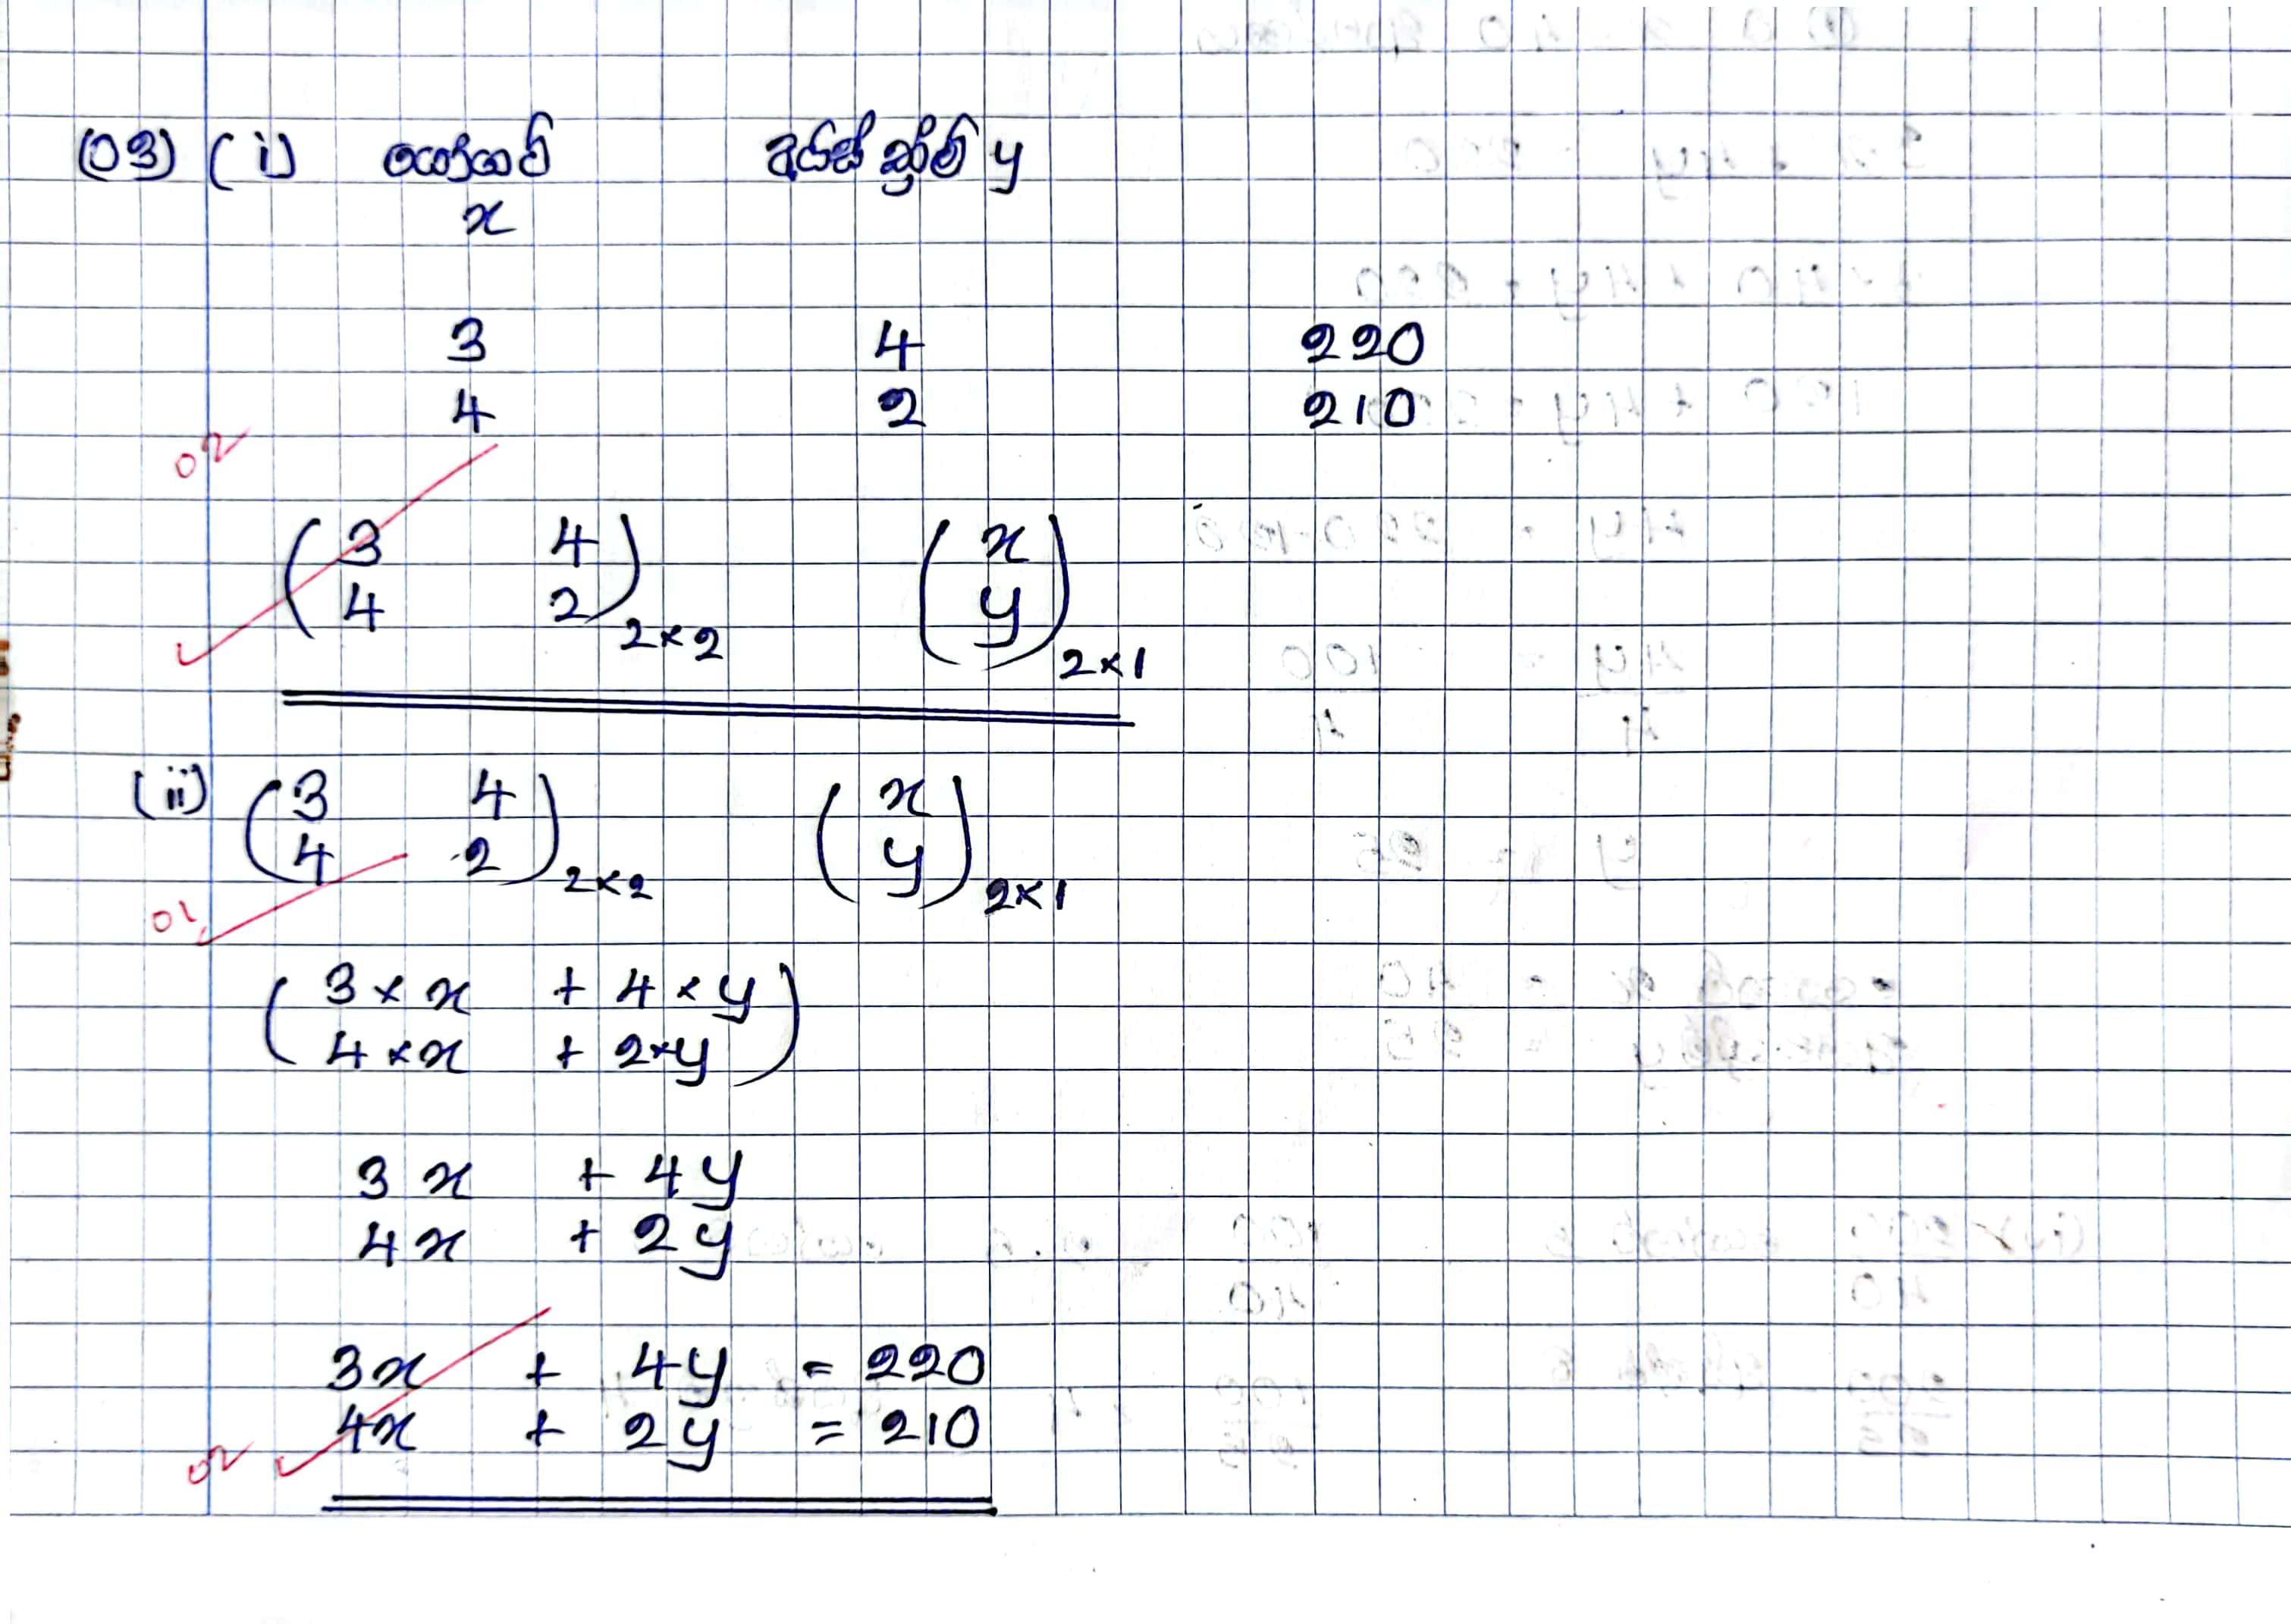 (03) (i) යෝගට් අයිස් ක්‍රීම් y
x
3 4 220
4 2 210
02
( 3 4
4 2 ) 2×2 ( x
y ) 2×1
(ii) ( 3 4
4 2 ) 2×2 ( x
y ) 2×1
( 3 × x + 4 × y
4 × x + 2 × y )
3x + 4y
4x + 2y
3x + 4y = 220
4x + 2y = 210
02